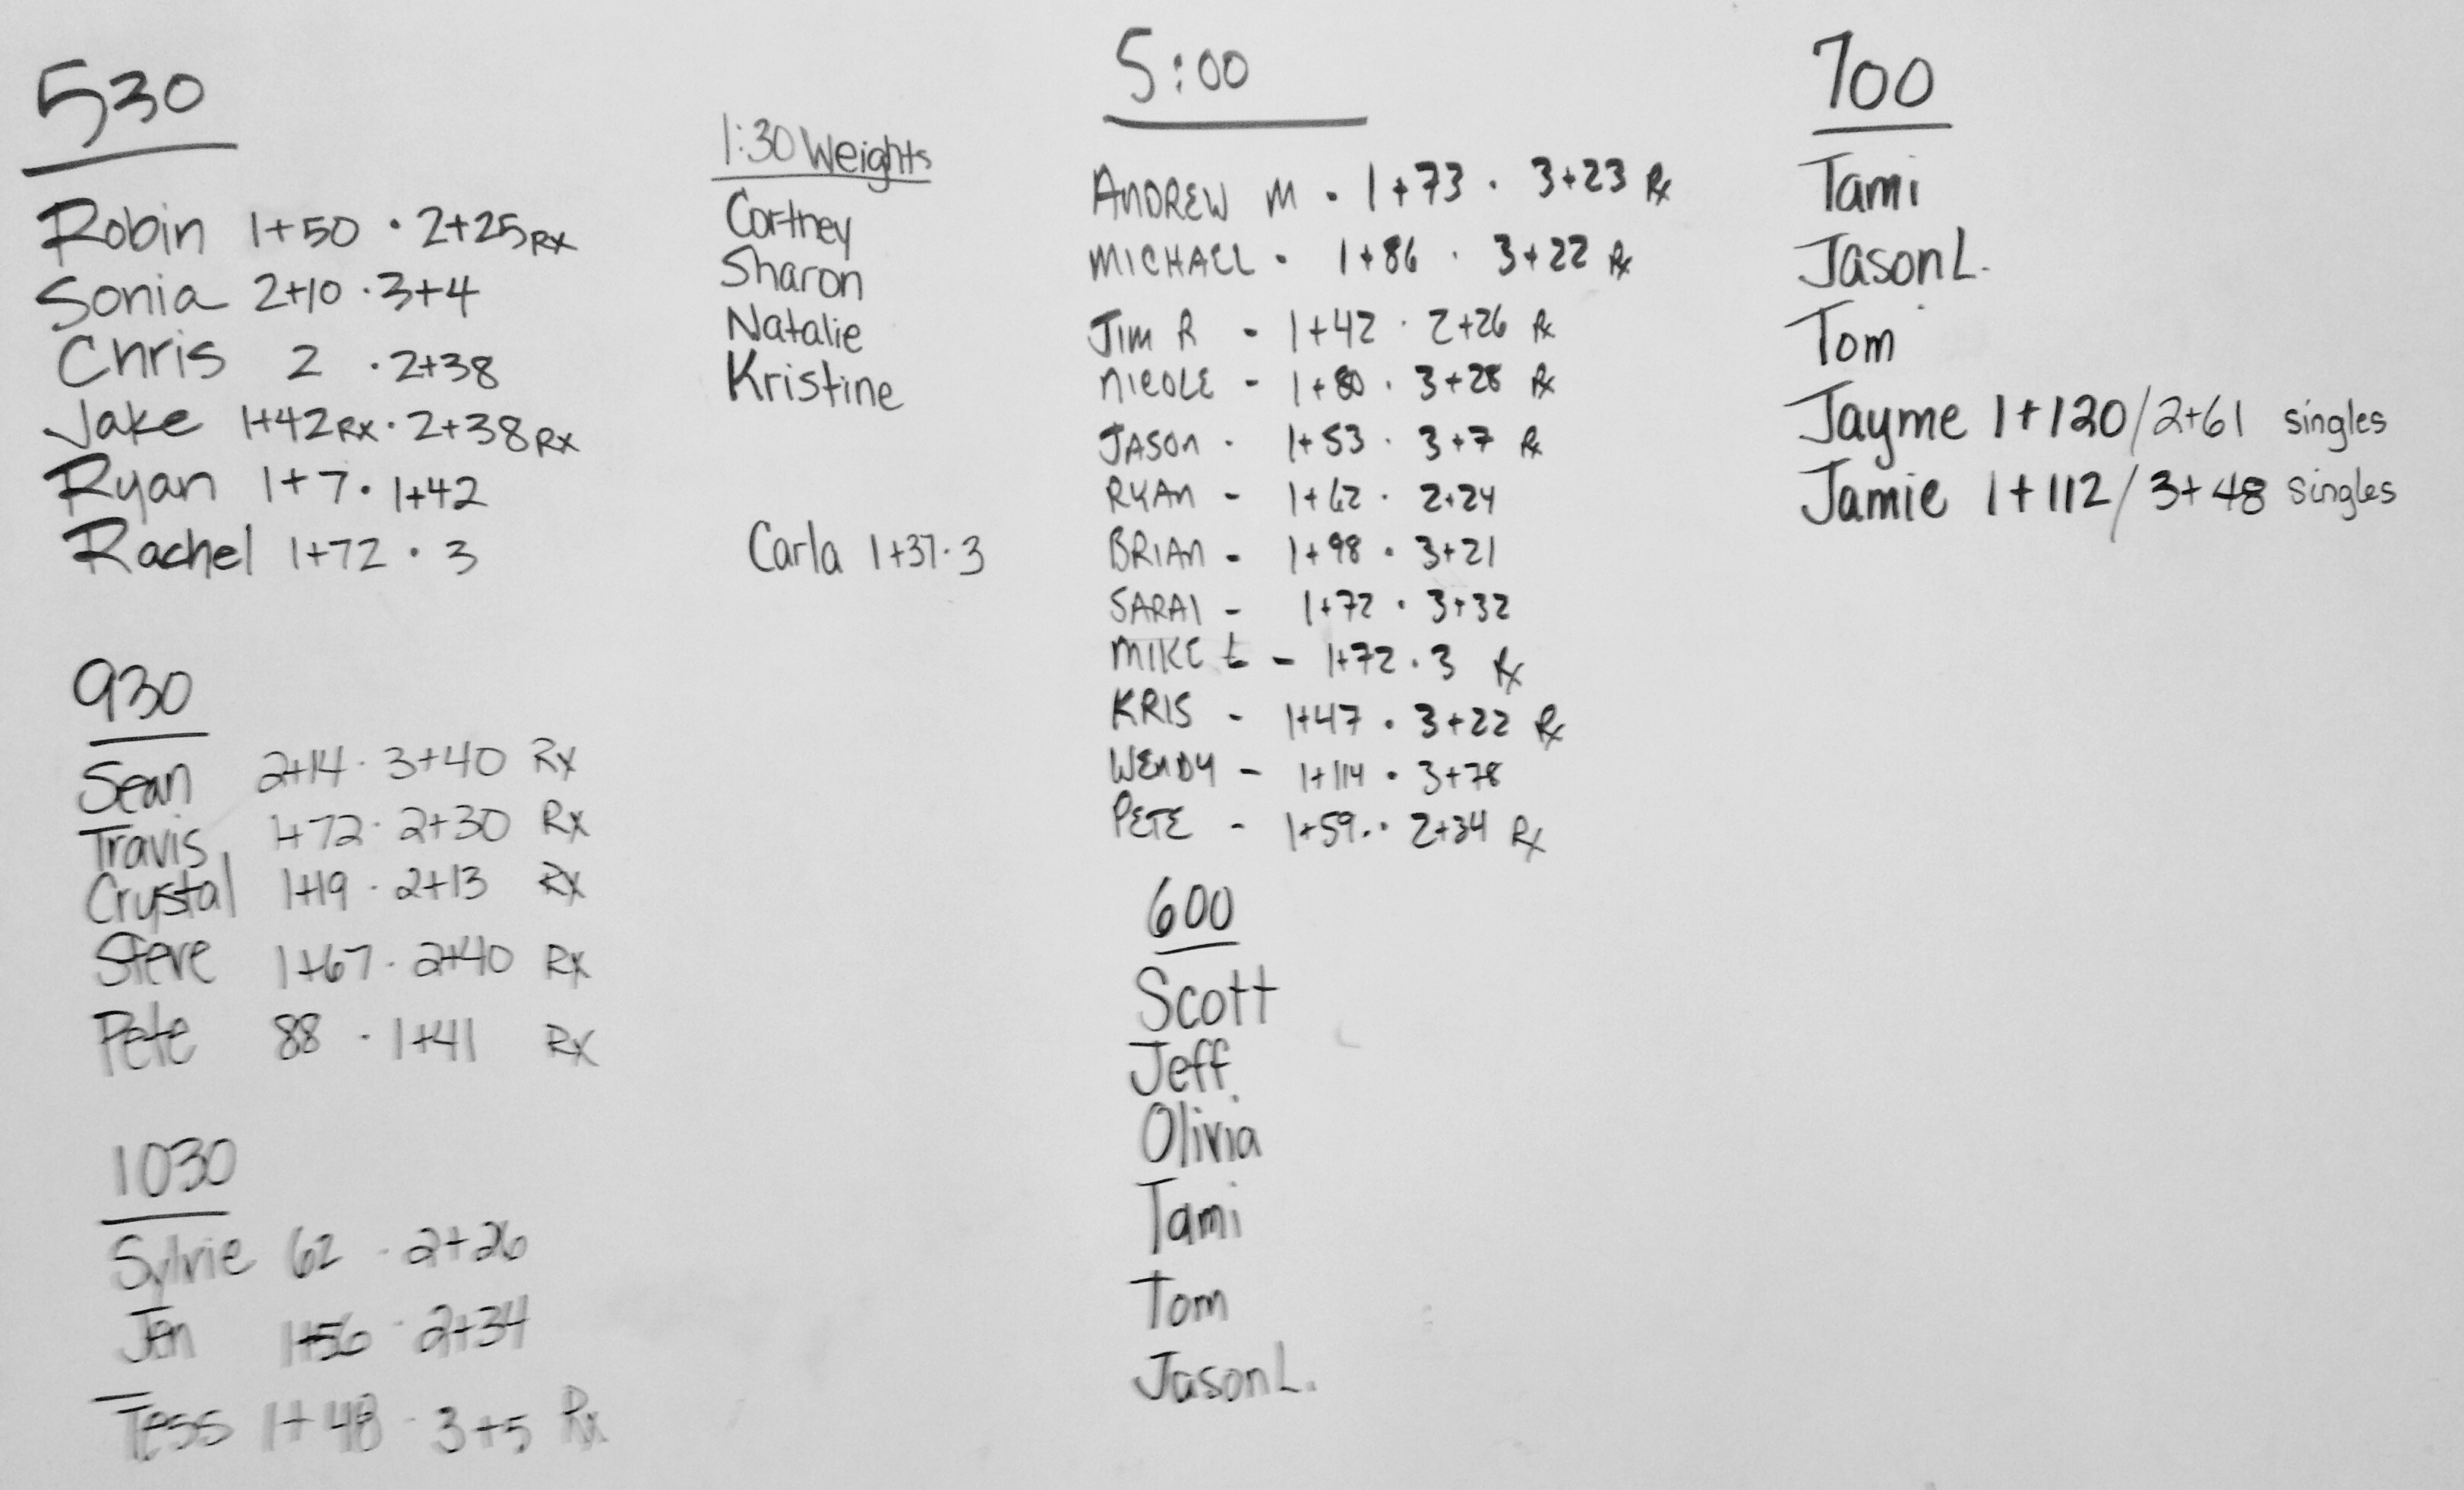 530
Robin 1+50 · 2+25 Rx
Sonia 2+10 · 3+4
Chris 2 · 2+38
Jake 1+42 Rx · 2+38 Rx
Ryan 1+7 · 1+42
Rachel 1+72 · 3
930
Sean 2+14 · 3+40 Rx
Travis 1+72 · 2+30 Rx
Crystal 1+19 · 2+13 Rx
Steve 1+67 · 2+40 Rx
Pete 88 · 1+41 Rx
1030
Sylvie 62 · 2+26
Jen 1+56 · 2+34
Tess 1+48 · 3+5 Rx
1:30 Weights
Cortney
Sharon
Natalie
Kristine
Carla 1+37 · 3
5:00
ANDREW M · 1+73 · 3+23 Rx
MICHAEL · 1+86 · 3+22 Rx
JIM R - 1+42 · 2+26 Rx
NICOLE - 1+80 · 3+28 Rx
JASON - 1+53 · 3+7 Rx
RYAN - 1+62 · 2+24
BRIAN - 1+98 · 3+21
SARAI - 1+72 · 3+32
MIKE - 1+72 · 3 Rx
KRIS - 1+47 · 3+22 Rx
WENDY - 1+114 · 3+78
PETE - 1+59 · · 2+34 Rx
600
Scott
Jeff
Olivia
Tami
Tom
Jason L.
700
Tami
Jason L.
Tom
Jayme 1+120/2+61 singles
Jamie 1+112/3+48 singles